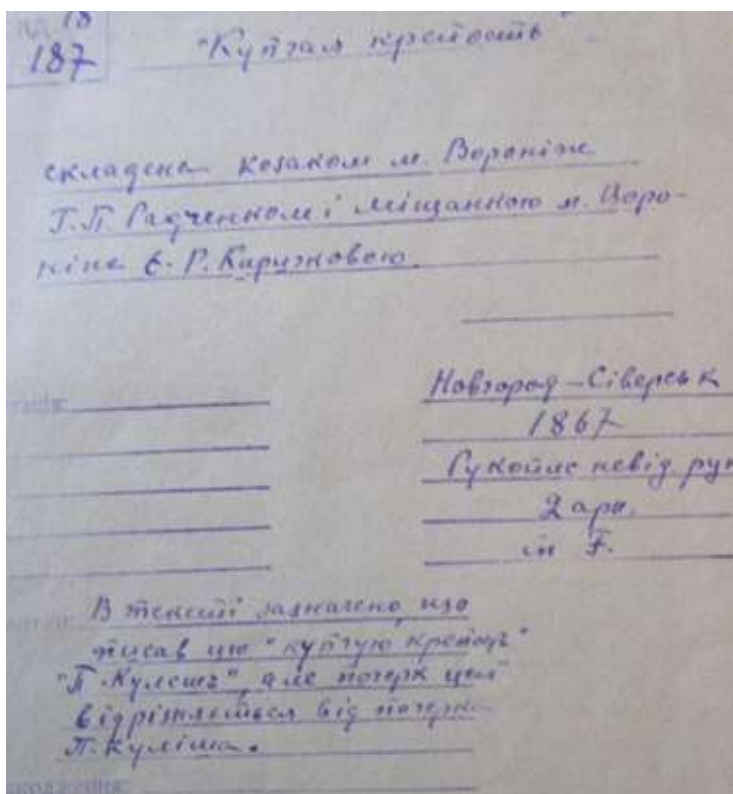 18
187
"Купчая крепость"
складена козаком м. Вороніже
Г.П. Радченком і міщанкою м. Воро-
ніже Є. Р. Каружковою.
Новгород-Сіверськ
1867
Рукопис невід. рук
2 арк.
in F.
В тексті зазначено, що
писав цю "купчую крепость"
"П. Кулешъ", але почерк цей
відрізняється від почерка
П. Куліша.